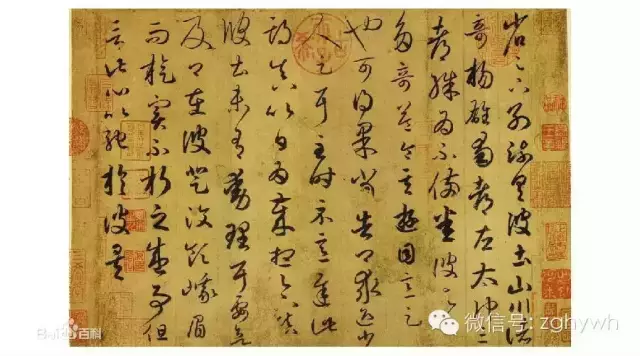 省足下別疏具彼土山川諸
奇楊雄蜀都左太沖三
都殊為不備悉彼故為
多奇益令其遊目意足
也可得果當告卿求迎少
人足耳至時示意遲此
期真以日為歲想足下鎮
彼土未有動理耳要欲
及卿在彼登汶領峨眉
而旋實不朽之盛事但
言此心以馳於彼矣
Bai百科
微信号: zghywh